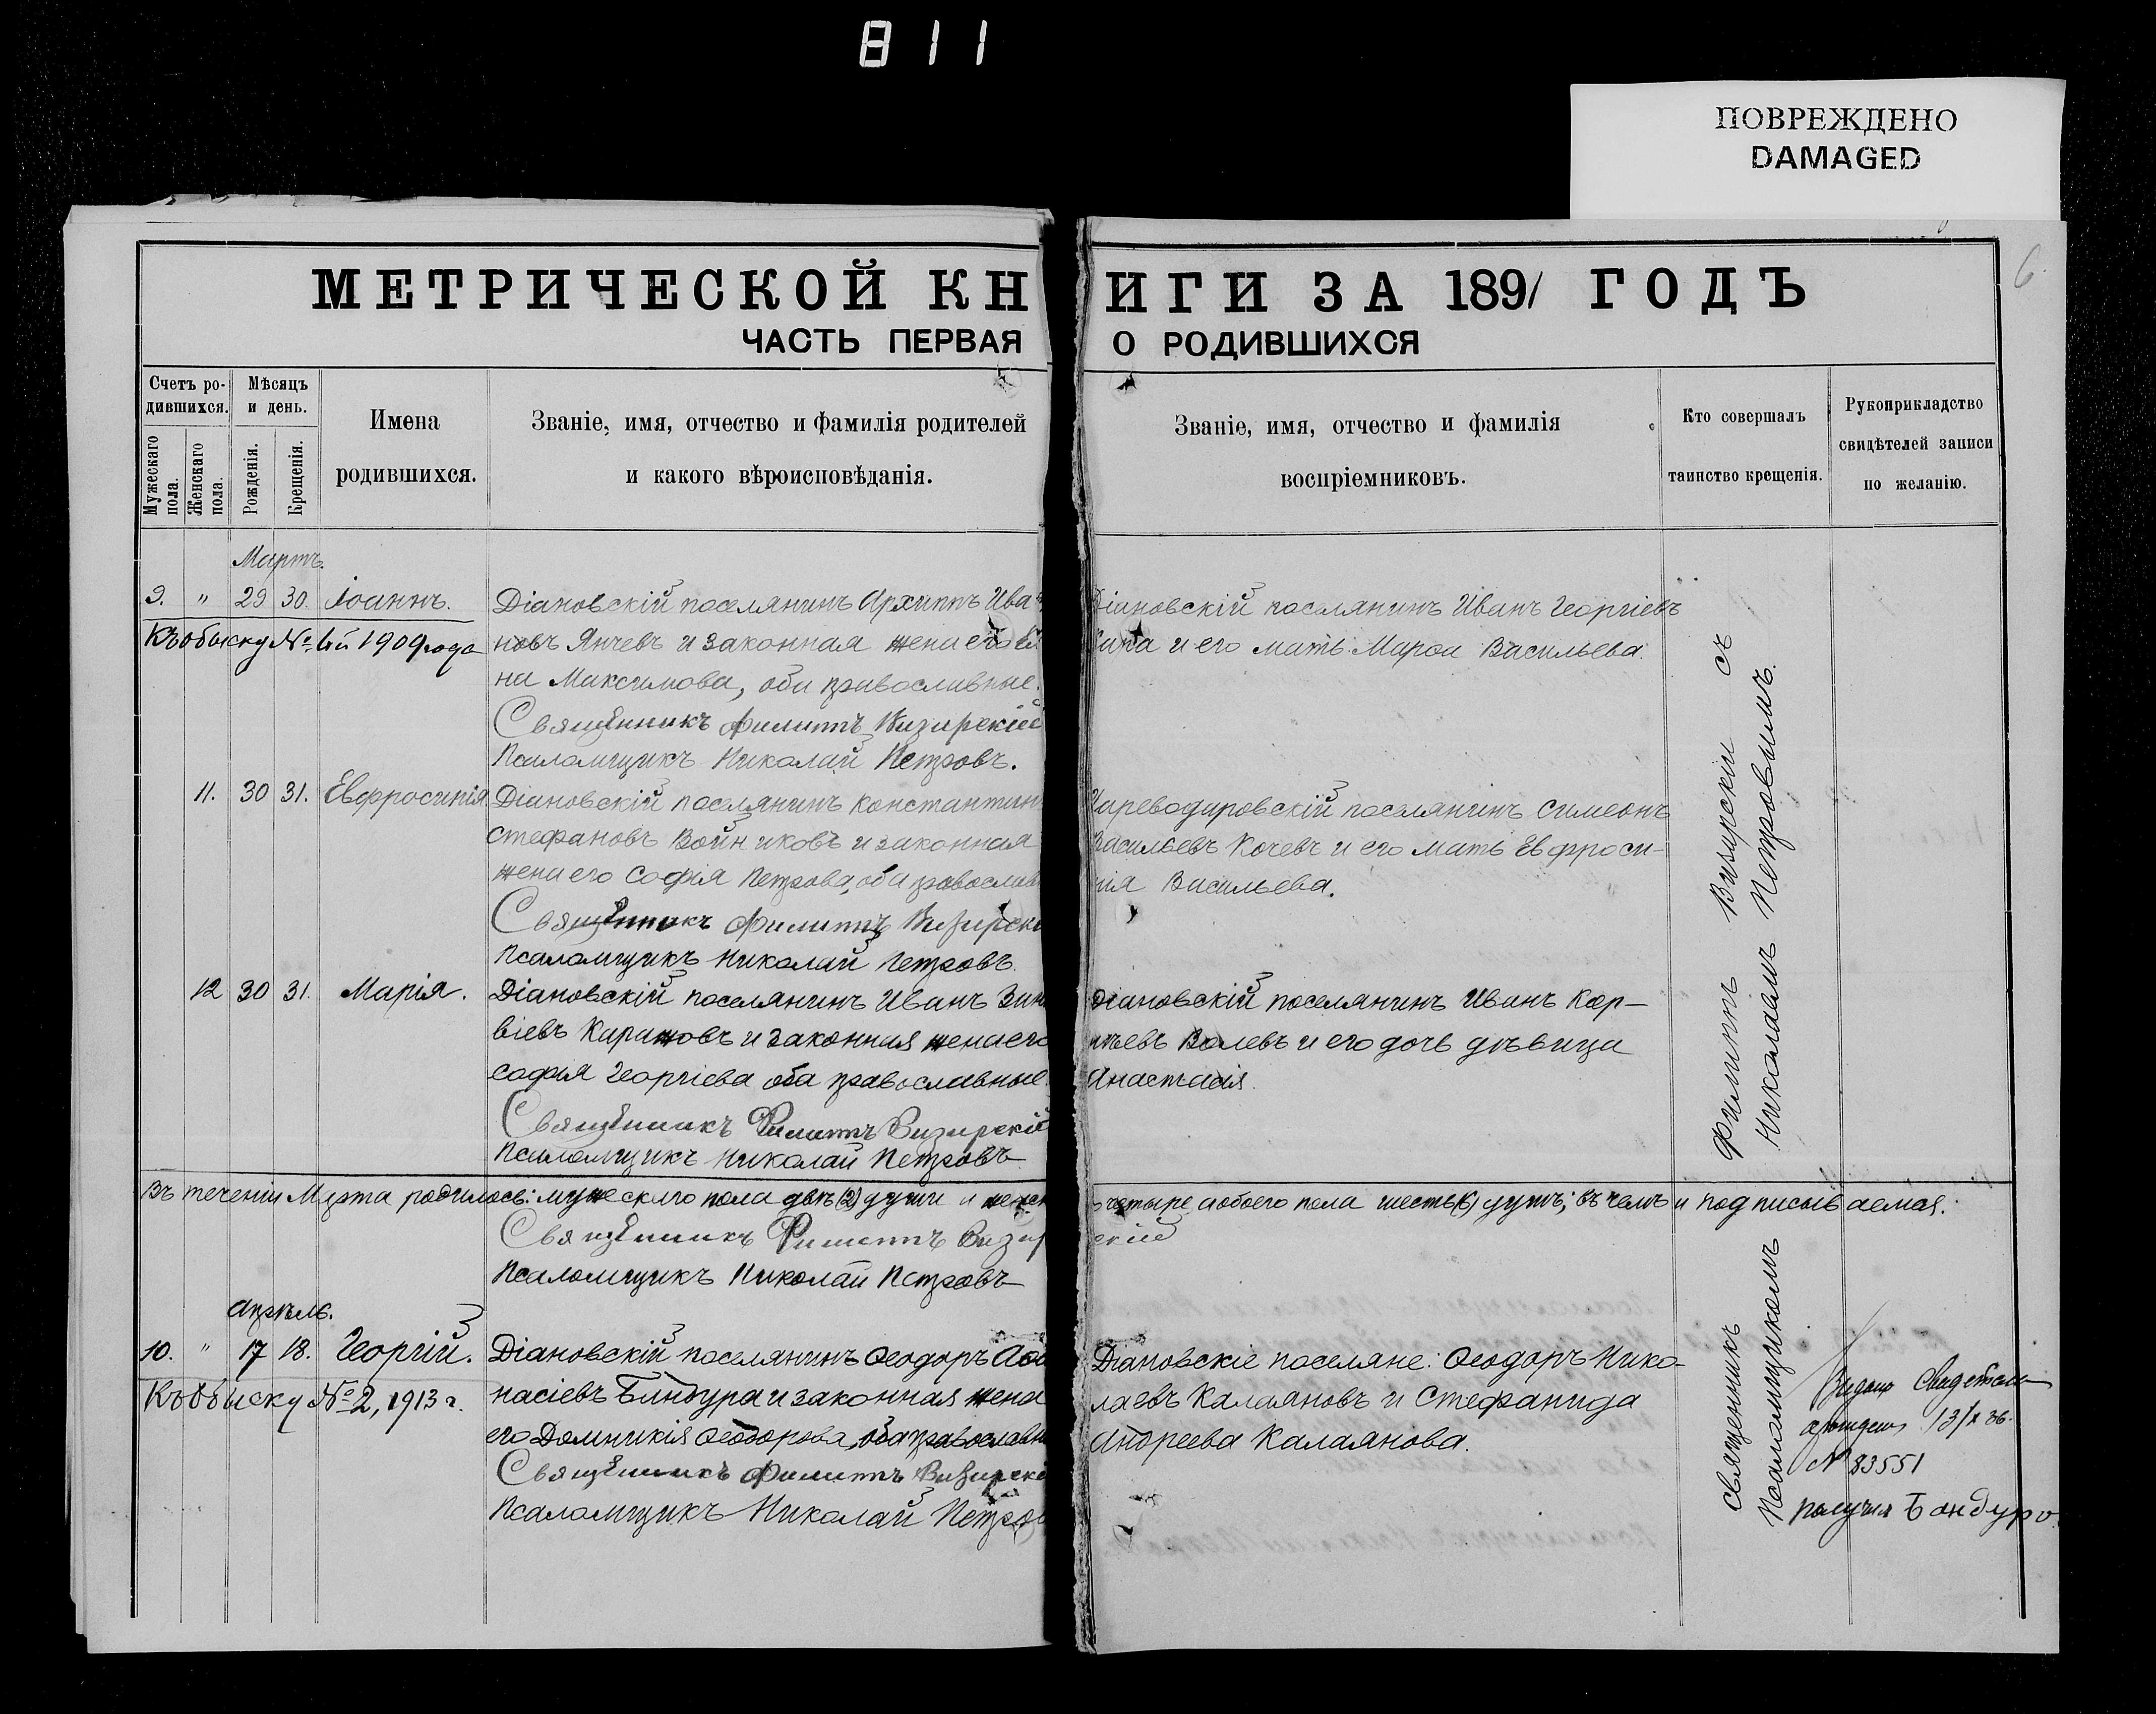 811
ПОВРЕЖДЕНО
DAMAGED
6.
МЕТРИЧЕСКОЙ КНИГИ ЗА 1891 ГОДЪ
ЧАСТЬ ПЕРВАЯ О РОДИВШИХСЯ
Счетъ ро-
дившихся.
Мужескаго пола.
Женскаго пола.
Мѣсяцъ
и день.
Рожденія.
Крещенія.
Имена
родившихся.
Званіе, имя, отчество и фамилія родителей
и какого вѣроисповѣданія.
Званіе, имя, отчество и фамилія
воспріемниковъ.
Кто совершалъ
таинство крещенія.
Рукоприкладство
свидѣтелей записи
по желанію.
Мартъ.
9. " 29 30. Іоаннъ.
Къ обыску № 4й 1909 года
Діановскій поселянинъ Архиппъ Ива
новъ Янчевъ и законная жена его Ел
на Максимова, оба православные.
Священникъ Филиппъ Визирскій
Псаломщикъ Николай Петровъ.
Діановскій поселянинъ Иванъ Георгіевъ
и его мать Марѳа Васильева.
11. 30 31. Евфросинія
Діановскій поселянинъ Константинъ
Стефановъ Войниковъ и законная
жена его Софія Петрова, оба православ
Священникъ Филиппъ Визирскі
Псаломщикъ Николай Петровъ.
Цареводаровскій поселянинъ Симеонъ
Васильевъ Кочевъ и его мать Евфроси-
нія Васильева.
12 30 31. Марія.
Діановскій поселянинъ Иванъ Зино
віевъ Каражовъ и законная жена его
Софія Георгіева оба православные.
Священникъ Филиппъ Визирскій
Псаломщикъ Николай Петровъ
Діановскій поселянинъ Иванъ Кар-
пѣевъ Валевъ и его дочь дѣвица
Анастасія.
Въ теченіи Марта родилось: мужескаго пола двѣ (2) души и женск четыре, а обоего пола шесть (6) душъ; въ чемъ и подписываемся.
Священникъ Филиппъ Визирскій
Псаломщикъ Николай Петровъ
Апрѣль.
10. " 17 18. Георгій.
Къ обыску № 2, 1913 г.
Діановскій поселянинъ Ѳеодоръ Аѳа
насіевъ Бандура и законная жена
его Домникія Ѳеодорова, оба православн
Священникъ Филиппъ Визирскі
Псаломщикъ Николай Петров
Діановскіе поселяне: Ѳеодоръ Нико-
лаевъ Калаяновъ и Стефанида
Андреева Калаянова.
Священникъ Филиппъ Визирскій съ
Псаломщикомъ Николаемъ Петровымъ.
Видано
13/X 36.
№ 83551
получил Бандуро